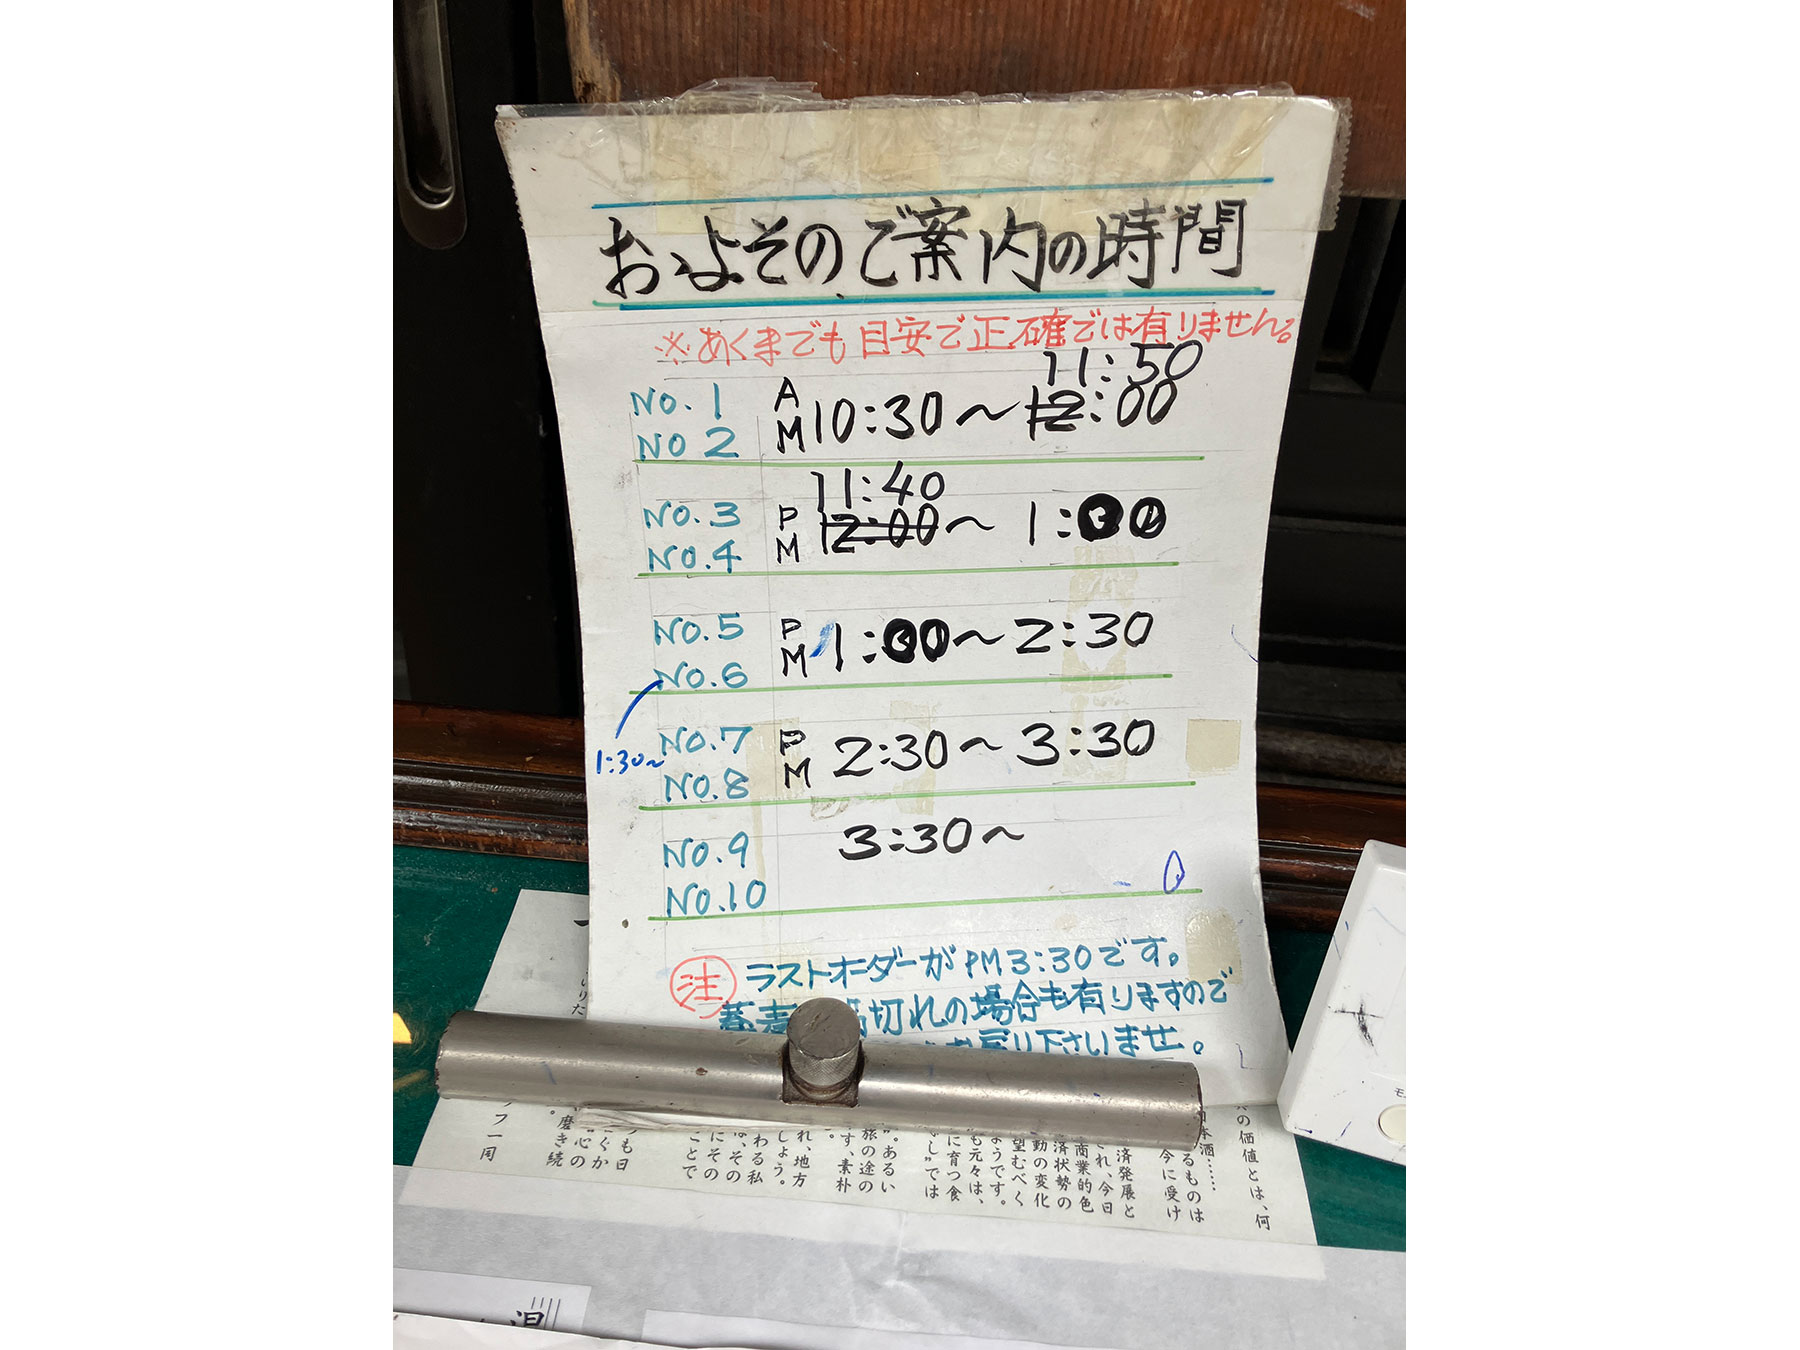 およそのご案内の時間
※あくまでも目安で正確では有りません。
11:50
NO.1 AM 10:30～12:00
NO 2
11:40
NO.3 PM 12:00～1:00
NO.4
NO.5 PM 1:00～2:30
NO.6
1:30～
NO.7 PM 2:30～3:30
NO.8
NO.9 3:30～
NO.10
注 ラストオーダーがPM3:30です。
蕎麦 切れの場合も有りますので
戻り下さいませ。
の価値とは、何
るものは
今に受け
本酒……
済発展と
これ、今日
商業的色
済状勢の
動の変化
望むべく
ようです。
も元々は、
に育つ食
し”では
”。あるい
旅の途の
す、素朴
れ、地方
しよう。
わる私
な、その
にその
ことで
も日
ぐか
“心の
磨き続
。
フ一同
いりた
湯